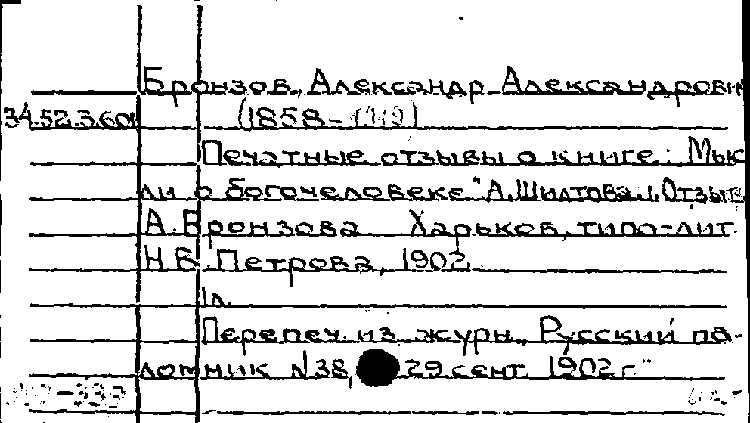 Бронзов, Александр Александрович
34.52.3.601 (1858-1919)
Печатные отзывы о книге: "Мыс
ли о богочеловеке" А. Шилтова. 1. Отзыв
А. Бронзова Харьков, типо-лит.
Н.В. Петрова, 1902.
1л.
Перепеч. из журн. "Русский па-
ломник N38, 29 сент. 1902 г."